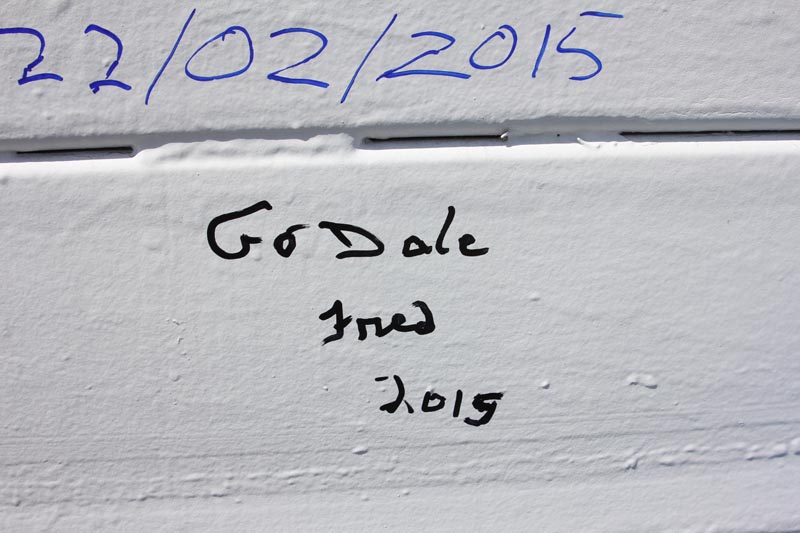 22/02/2015
Go Dale
Fred
2015